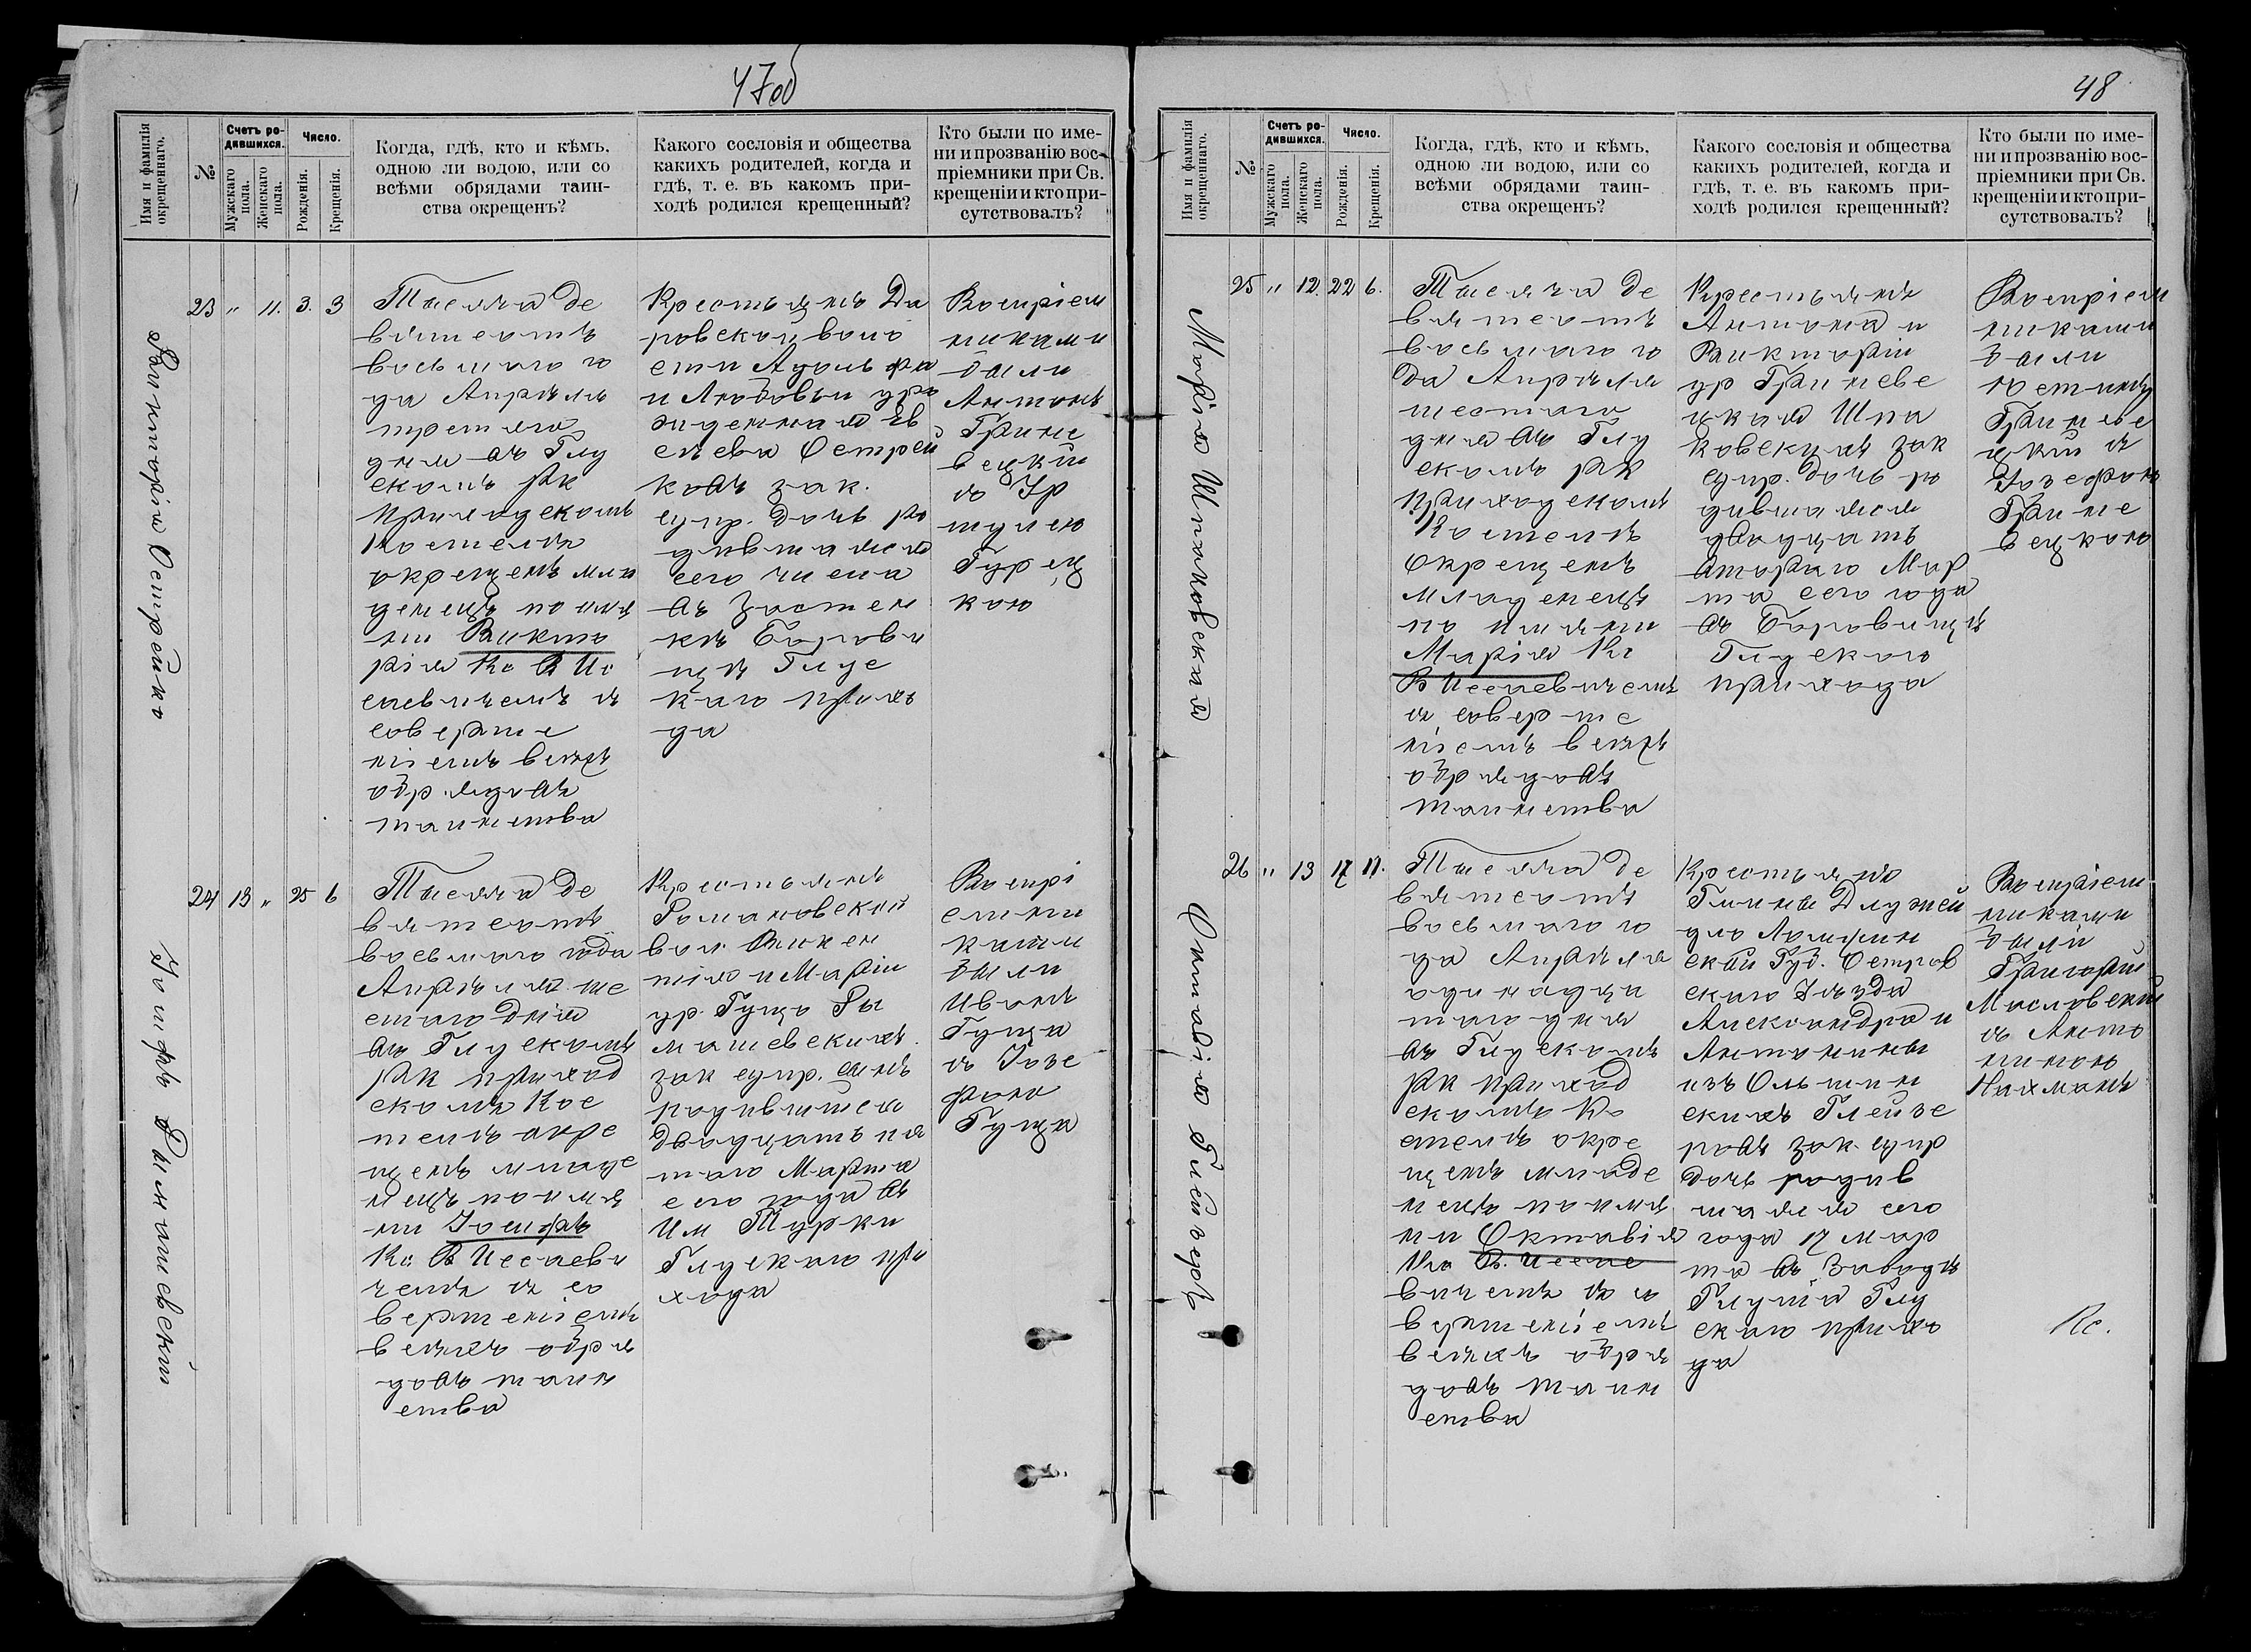 47об
Имя и фамилія
окрещеннаго.
№
Счетъ ро-
дившихся.
Мужскаго
пола.
Женскаго
пола.
Число.
Рожденія.
Крещенія.
Когда, гдѣ, кто и кѣмъ,
одною ли водою, или со
всѣми обрядами таин-
ства окрещенъ?
Какого сословія и общества
какихъ родителей, когда и
гдѣ, т. е. въ какомъ при-
ходѣ родился крещенный?
Кто были по име-
ни и прозванію вос-
пріемники при Св.
крещеніи и кто при-
сутствовалъ?
Викторія Острейко
23 " 11. 3. 3
Тысяча де
вятсотъ
восьмаго го
да Апрѣля
третьяго
дня въ Глу
скомъ рк
приходскомъ
костелѣ
окрещенъ мла
денецъ по имя
ни Викто
рія Кс В Ис
саевичемъ съ
соверше
ніемъ всѣхъ
обрядовъ
таинства
Крестьянъ Да
ровской воло
сти Адольфа
и Людовы ур
ожденная Ев
сѣева Острей
ковъ зак.
супр. дочь ро
дившаяся
сего числа
въ Застен
кѣ Борови
цѣ Глус
каго прихо
да
Воспріем
никами
были
Антонъ
Грине
вецкій
съ Ур
шулею
Гурец
кою
Іосифъ Рымашевскій
24 13 " 25 6
Тысяча де
вятсотъ
восьмаго года
Апрѣля ше
стаго дня
въ Глускомъ
рк приход
скомъ Кос
телѣ окре
щенъ младе
нецъ по имя
ни Іосифъ
Кс В Иссаеви
чемъ съ со
вершеніемъ
всѣхъ обря
довъ таин
ства
Крестьянъ
Романовской
вол. Викен
тія и Маріи
ур. Гуща Ры
машевскихъ
зак супр. сынъ
родившійся
двадцать пя
таго Марта
сего года въ
Им Турки
Глускаго при
хода
Воспрі
емни
ками
были
Иванъ
Гуща
съ Іозе
фою
Гуща
48
Имя и фамилія
окрещеннаго.
№
Счетъ ро-
дившихся.
Мужскаго
пола.
Женскаго
пола.
Число.
Рожденія.
Крещенія.
Когда, гдѣ, кто и кѣмъ,
одною ли водою, или со
всѣми обрядами таин-
ства окрещенъ?
Какого сословія и общества
какихъ родителей, когда и
гдѣ, т. е. въ какомъ при-
ходѣ родился крещенный?
Кто были по име-
ни и прозванію вос-
пріемники при Св.
крещеніи и кто при-
сутствовалъ?
Марія Шпаковская
25 " 12. 22 6.
Тысяча де
вятсотъ
восьмаго го
да Апрѣля
шестаго
дня въ Глу
скомъ рк
приходскомъ
Костелѣ
окрещенъ
младенецъ
по имяни
Марія Кс
В Иссаевичемъ
съ соверше
ніемъ всѣхъ
обрядовъ
таинства
Крестьянъ
Антона и
Викторіи
ур Гриневе
цкая Шпа
ковскихъ зак
супр. дочь ро
дившаяся
двадцать
втораго Мар
та сего года
въ Боровицѣ
Глускаго
прихода
Воспріем
никами
были
Грине
цкій съ
Іозефою
Грине
вецкою
Октавія Глейзеръ
26 " 13 17 11.
Тысяча де
вятсотъ
восьмаго го
да Апрѣля
одинадца
таго дня
въ Глускомъ
рк приход
скомъ Ко
стелѣ окре
щенъ младе
нецъ по имя
ни Октавія
Кс В. Иссае
вичемъ съ со
вершеніемъ
всѣхъ обря
довъ таин
ства
Крестьянъ
Гмины Длужней
дло Ломжин
ской Губ. Остров
скаго Уѣзда
Александра и
Антонины
изъ Ольшин
скихъ Глейзе
ровъ зак. супр
дочь родив
шаяся сего
года 17 Мар
та въ Заводѣ
Глуша Глу
скаго прихо
да
Воспріем
никами
были
Григорій
Масловскій
съ Анто
ниною
Нахманъ
Кс.